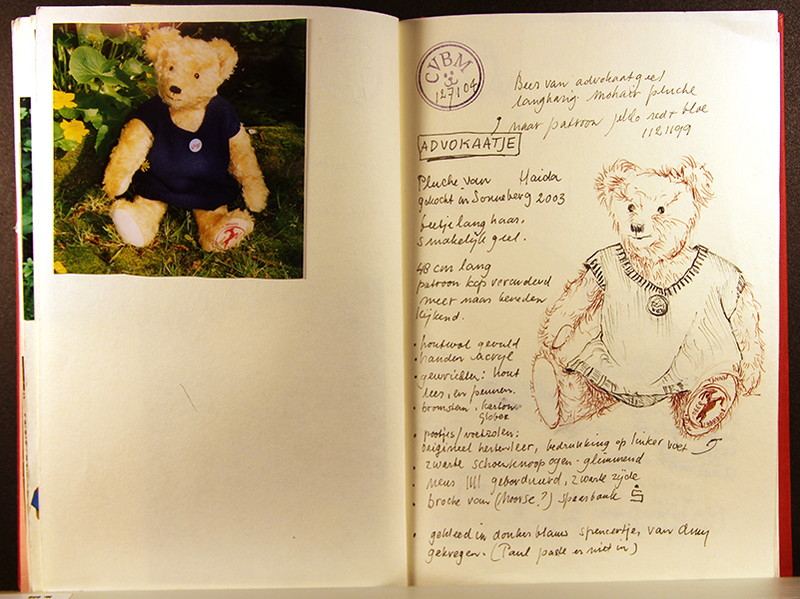 CVBM
12 7 04
Beer van advokaatgeel
langharig mohair pluche
naar patroon
1121199
ADVOKAATJE
Pluche van Haida
gekocht in Sonneberg 2003
beetje lang haar,
smakelijk geel.
48 cm lang
patroon kop veranderd
meer naar beneden
kijkend.
• houtwol gevuld
• handen acryl
• gewrichten: hout
leer, en pennen.
• bromstem, karton
• pootjes/voetzolen:
origineel hertenleer, bedrukking op linker voet
• zwarte schoenknoop ogen - glimmend
• neus |||| geborduurd, zwarte zijde
• broche van (Noorse?) spaarbank
• gekleed in donkerblauw spencertje, van
gekregen. (Paul paste er niet in)